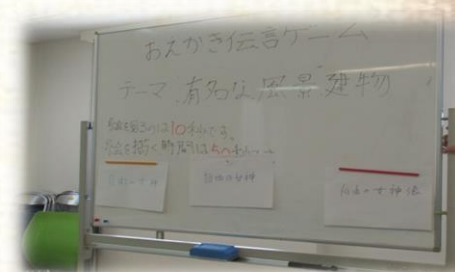 おえかき伝言ゲーム
テーマ 有名な風景、建物
絵を見るのは10秒です。
絵を描く時間は
自由の女神
自由の女神
自由の女神像